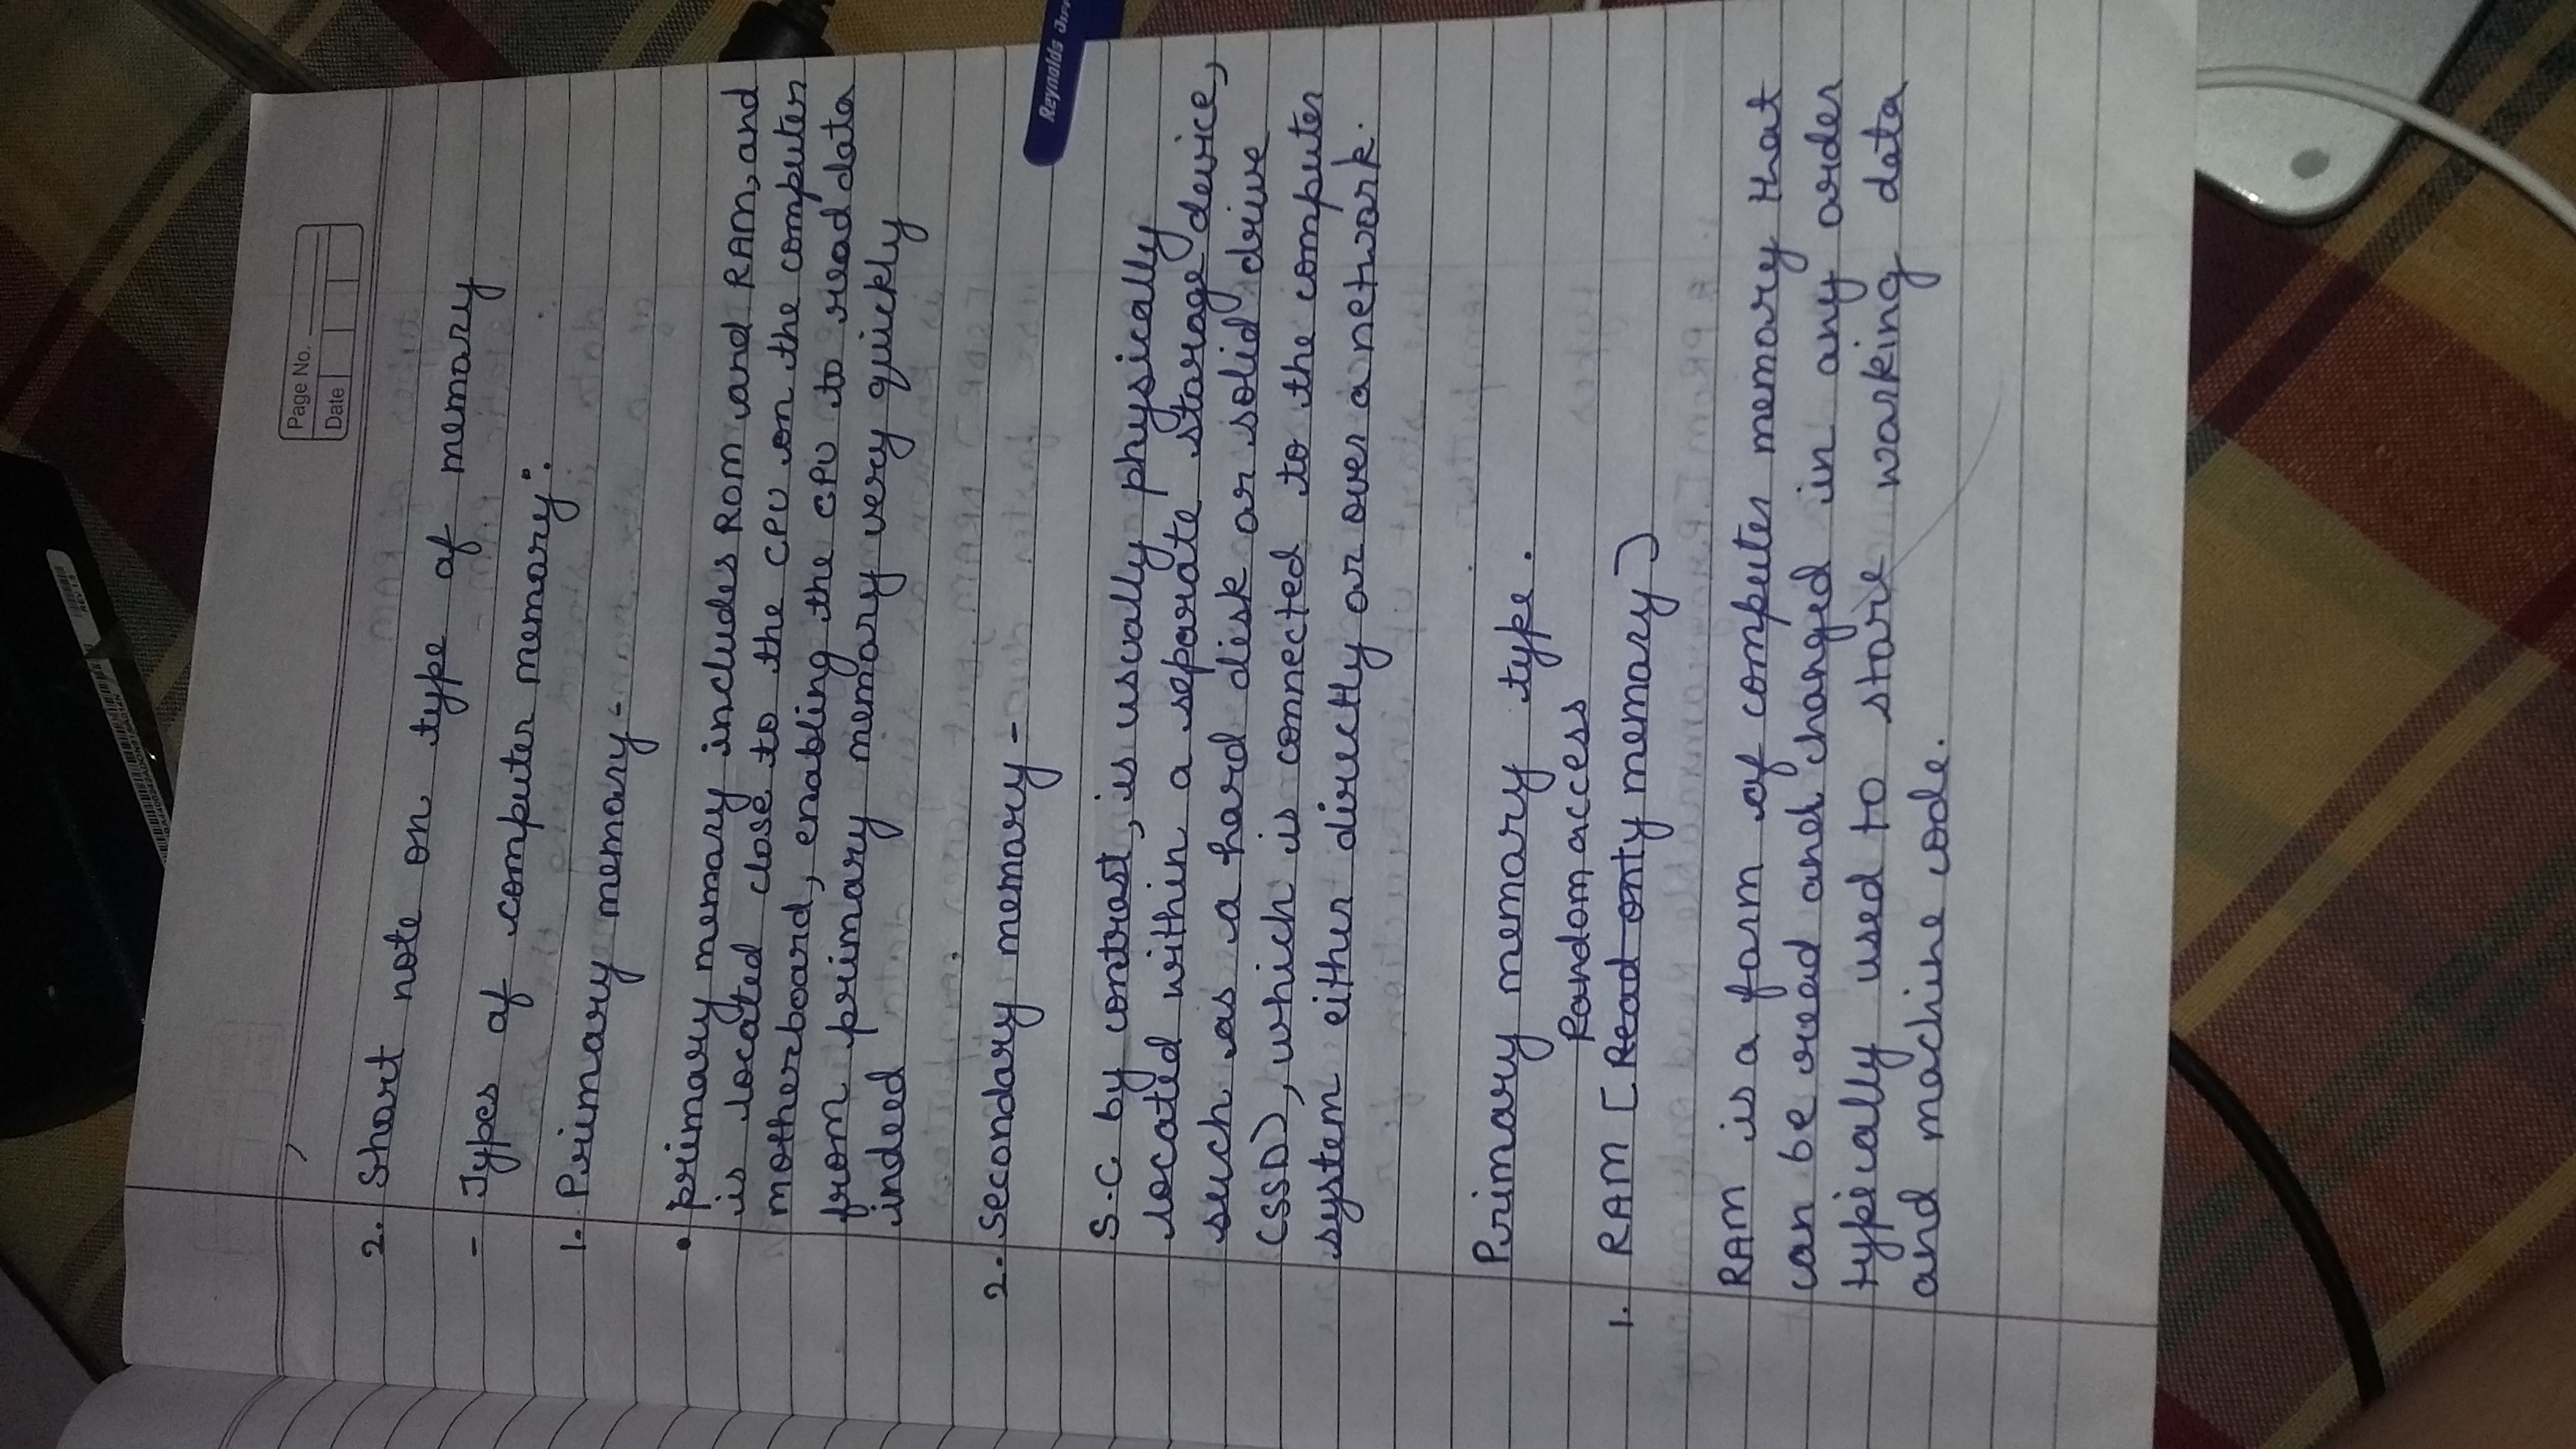 REV 1.5
Page No.
Date
2. Short note on type of memory
- Types of computer memory:
1. Primary memory -
• primary memory includes ROM and RAM, and
is located close to the CPU on the computer
motherboard, enabling the CPU to read data
from primary memory very quickly
indeed
2. Secondary memory -
S.C by contrast, is usually physically
located within a separate storage device,
such as a hard disk or solid drive
(SSD), which is connected to the computer
system either directly or over a network.
Reynolds
Primary memory type.
Random access
1. RAM [Read only memory]
RAM is a form of computer memory that
can be read and changed in any order
typically used to store working data
and machine code.